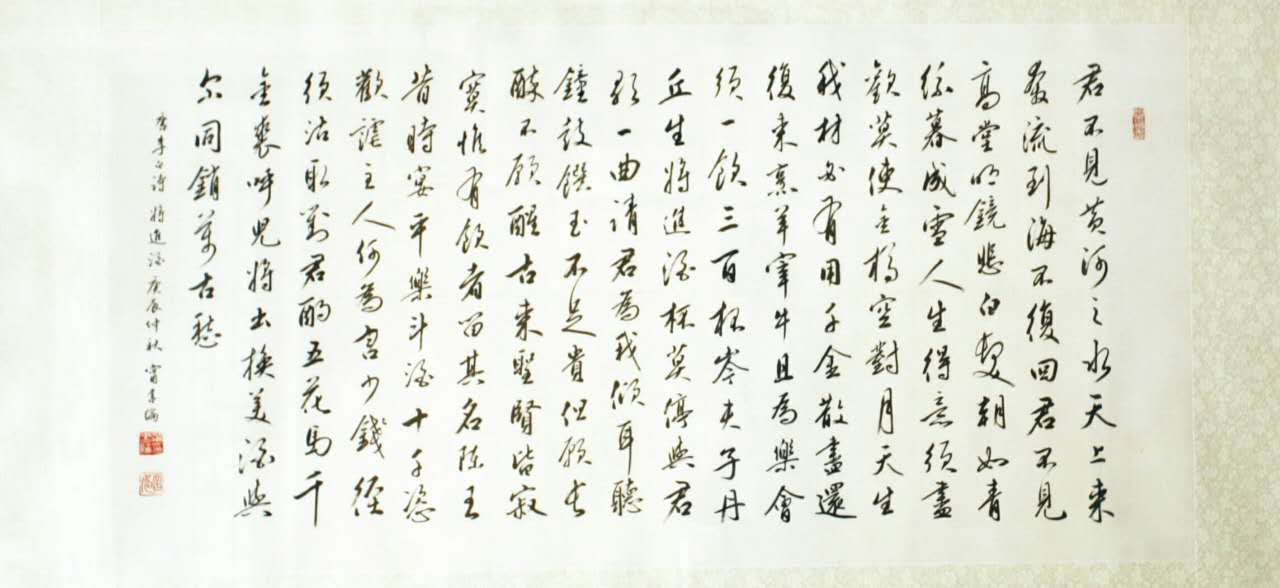 君不見黃河之水天上来
奔流到海不復回君不見
高堂明鏡悲白髮朝如青
絲暮成雪人生得意須盡
歡莫使金樽空對月天生
我材必有用千金散盡還
復来烹羊宰牛且為樂會
須一飲三百杯岑夫子丹
丘生將進酒杯莫停與君
歌一曲請君為我傾耳聽
鐘鼓饌玉不足貴但願長
醉不願醒古来聖賢皆寂
寞惟有飲者留其名陳王
昔時宴平樂斗酒十千恣
歡謔主人何為言少錢徑
須沽取對君酌五花馬千
金裘呼兒將出換美酒與
尔同銷萬古愁
唐李白詩將進酒庚辰仲秋